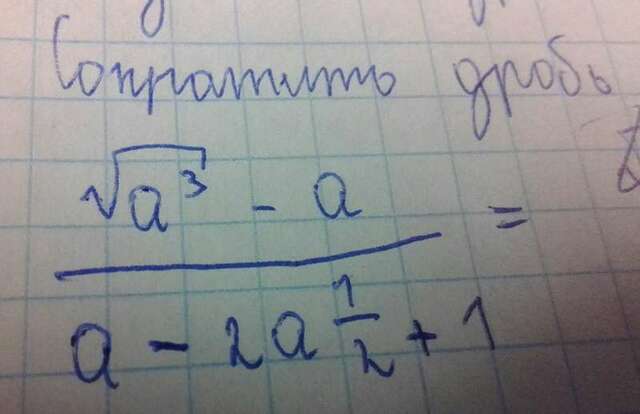 Сократить дробь
√a³ - a =
a - 2a½ + 1